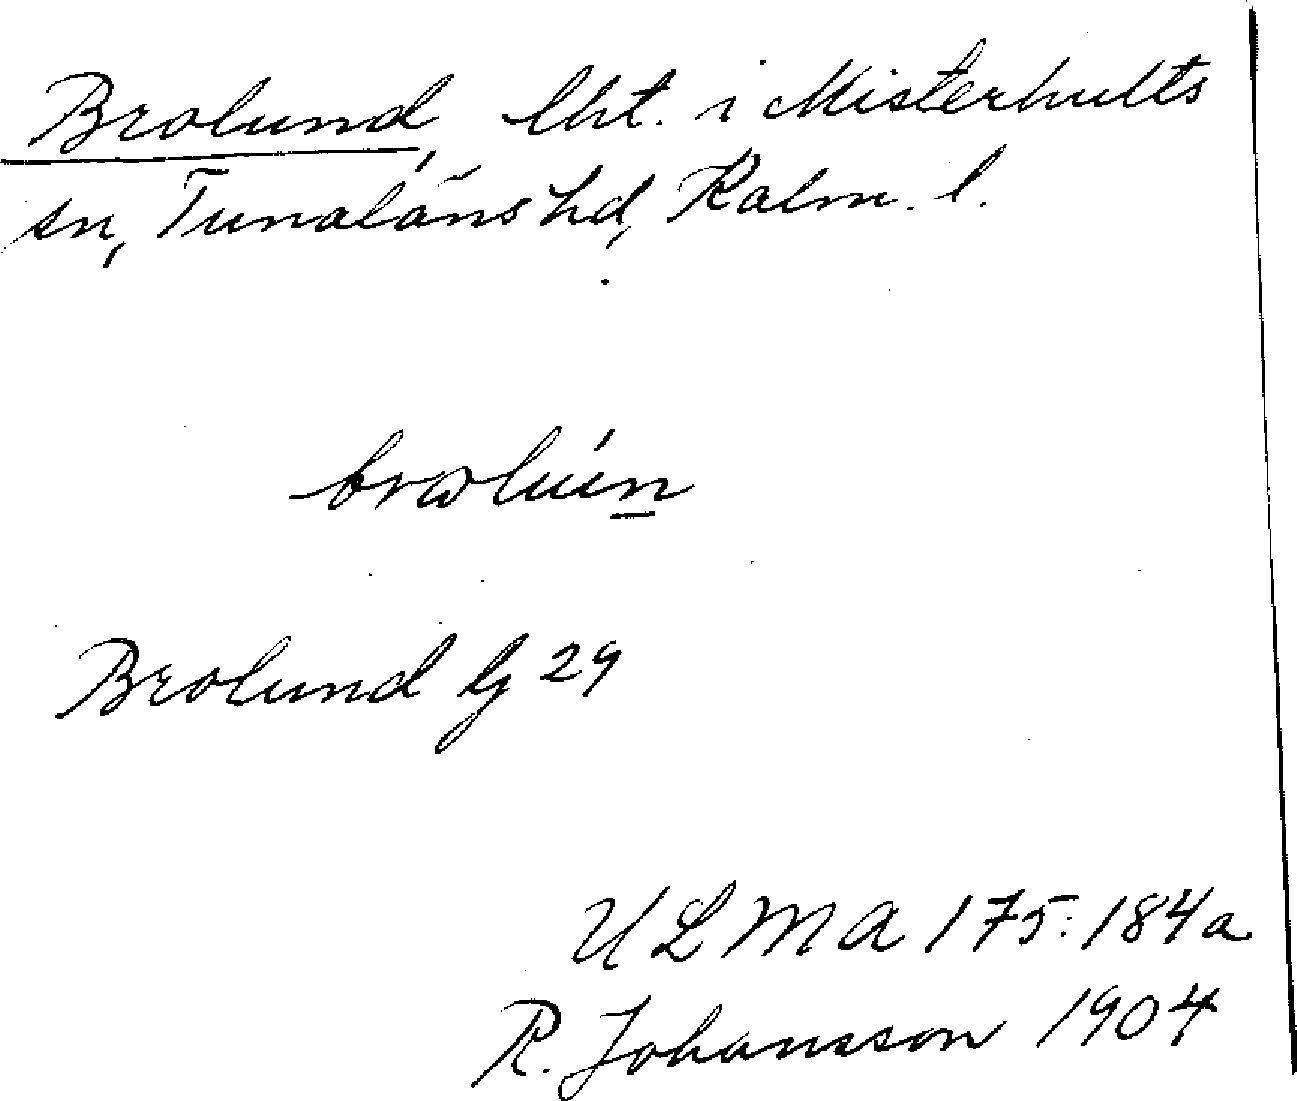 Brolund, lht. i Misterhults
sn, Tunaläns hd, Kalm. l.
Brolund lg 29
ULMA 175:184a
R. Johansson 1904